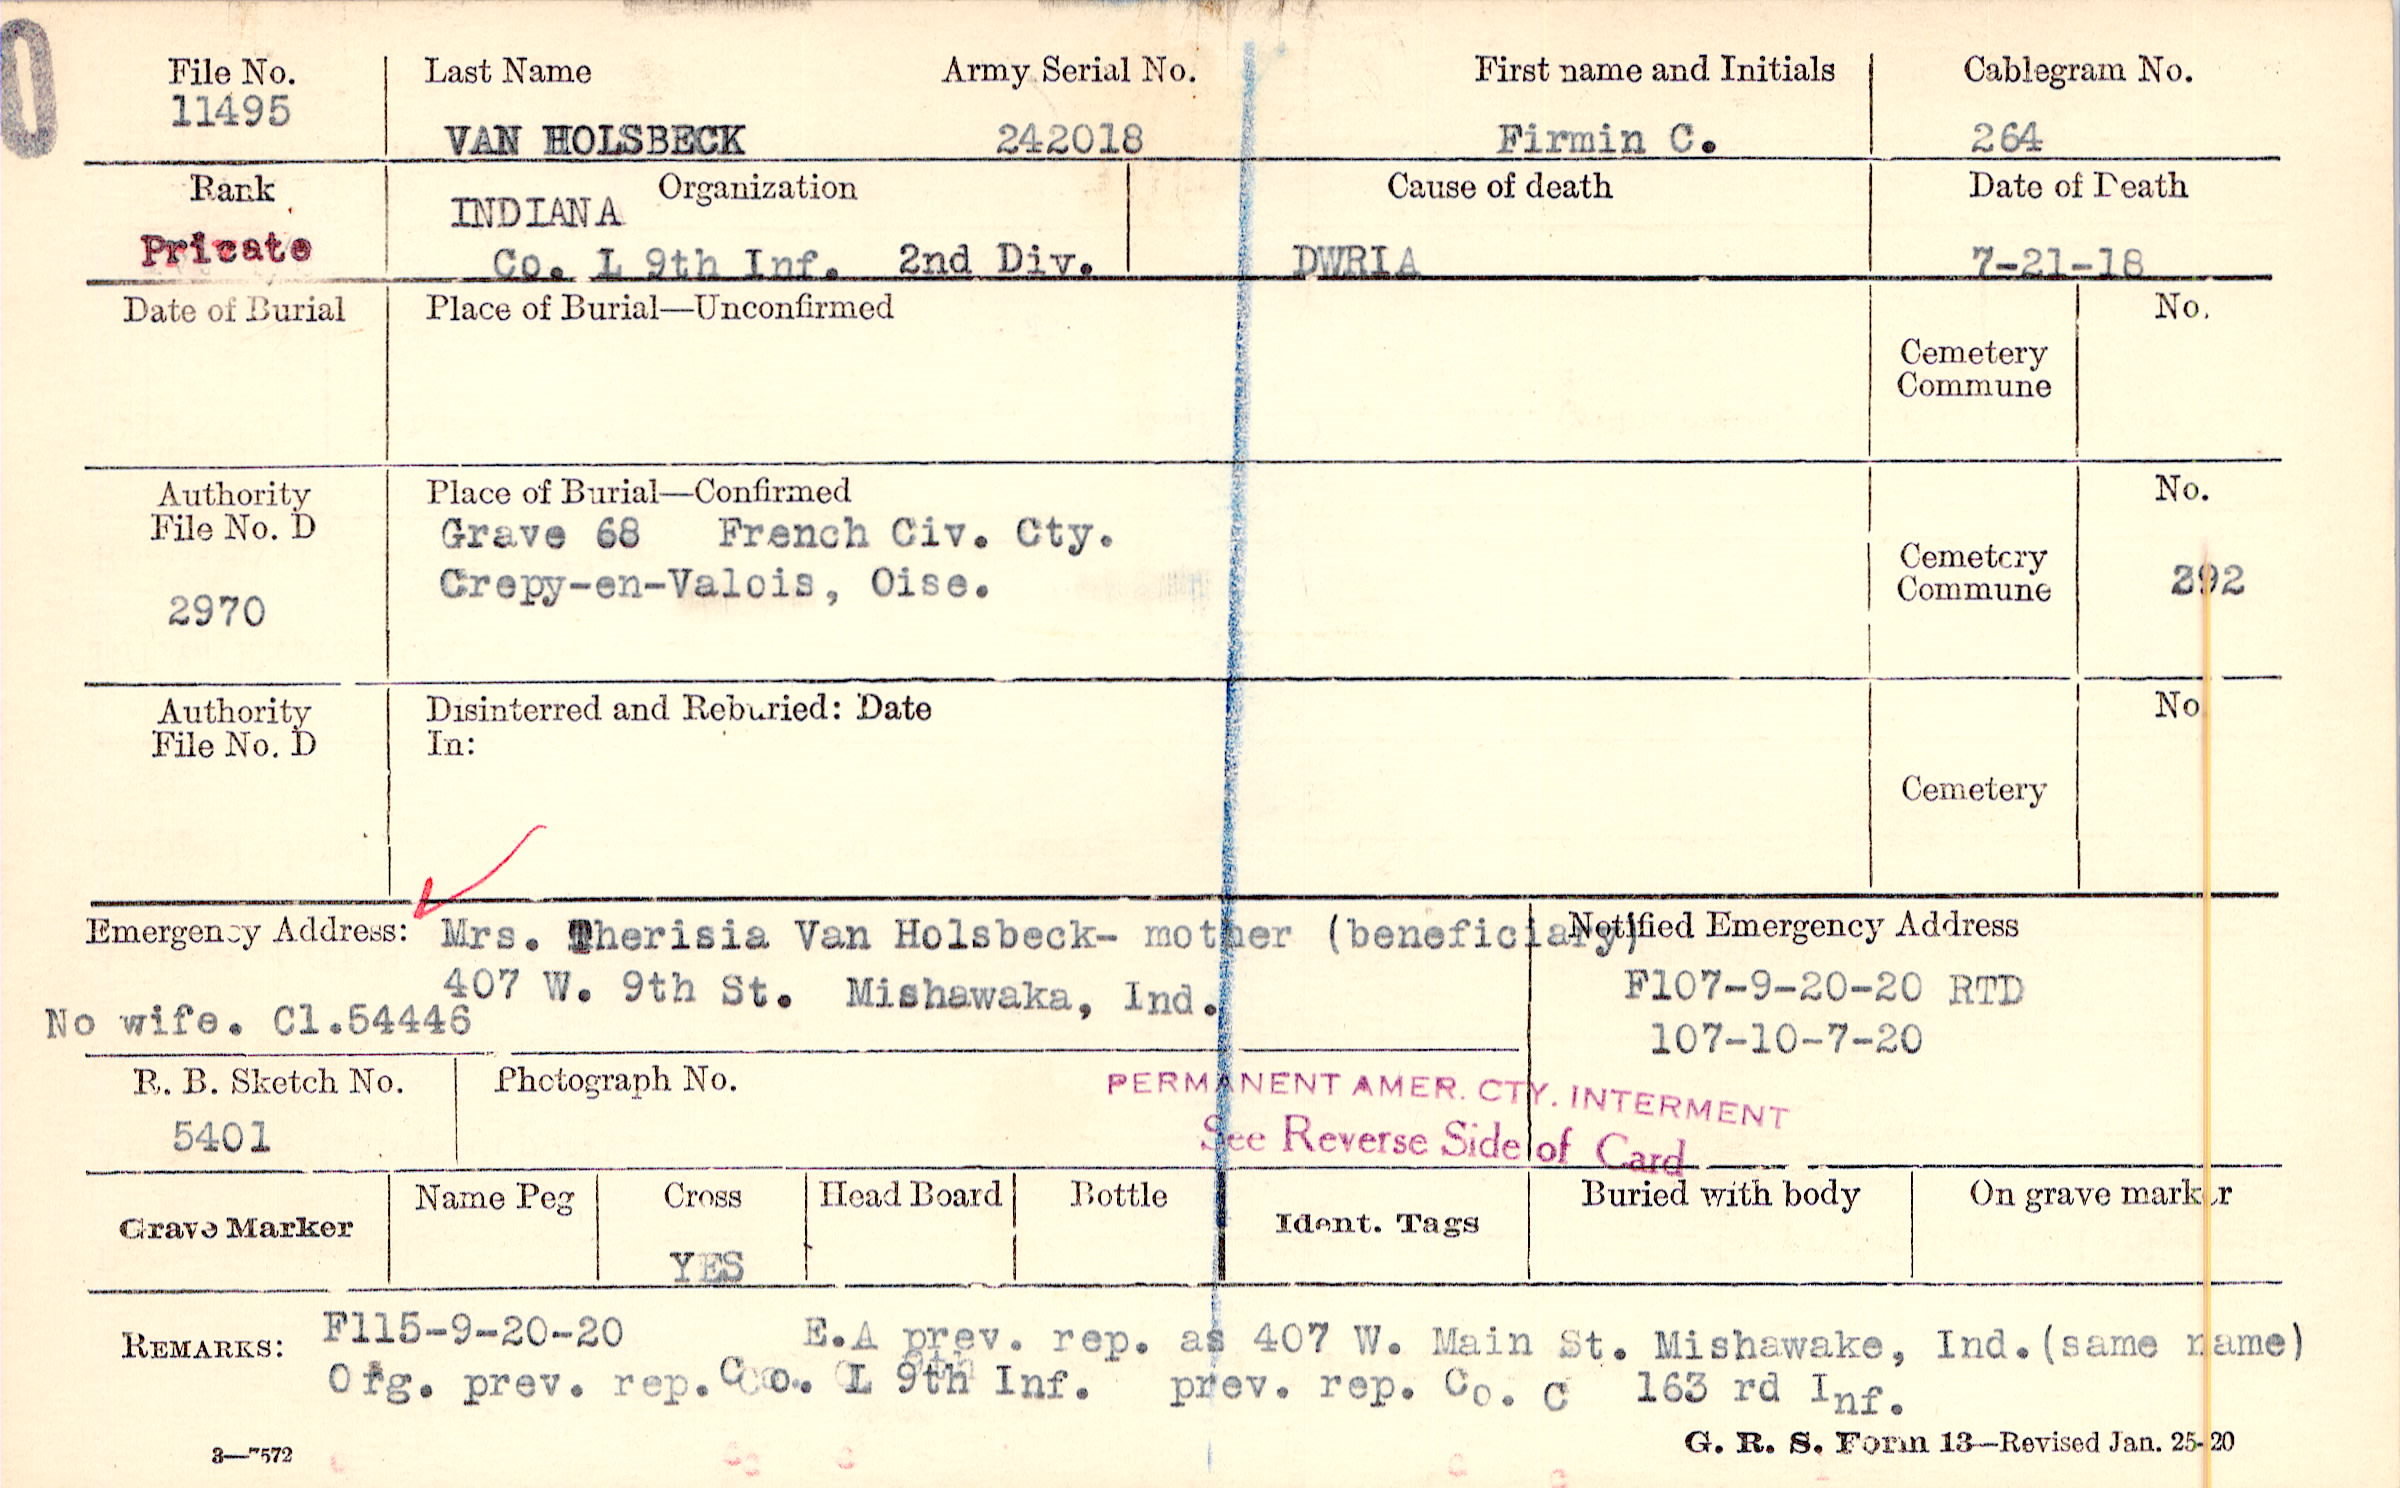 File No. Last Name Army Serial No. First name and Initials Cablegram No.
11495
VAN HOLSBECK 242018 Firmin C. 264
Rank Organization Cause of death Date of Death
INDIANA
Private Co. L 9th Inf. 2nd Div. DWRIA 7-21-18
Date of Burial Place of Burial—Unconfirmed No.
Cemetery
Commune
Authority Place of Burial—Confirmed No.
File No. D Grave 68 French Civ. Cty.
Cemetery
2970 Crepy-en-Valois, Oise. Commune 292
Authority Disinterred and Reburied: Date No
File No. D In:
Cemetery
Emergency Address: Mrs. Therisia Van Holsbeck- mother (beneficiary) Notified Emergency Address
407 W. 9th St. Mishawaka, Ind. F107-9-20-20 RTD
No wife. Cl.54446 107-10-7-20
R. B. Sketch No. Photograph No. PERMANENT AMER. CTY. INTERMENT
5401 See Reverse Side of Card
Grave Marker Name Peg Cross Head Board Bottle Ident. Tags Buried with body On grave marker
YES
REMARKS: F115-9-20-20 E.A prev. rep. as 407 W. Main St. Mishawake, Ind.(same name)
Org. prev. rep. Co. L 9th Inf. prev. rep. Co. C 163 rd Inf.
3—7572 G. R. S. Form 13—Revised Jan. 25-20